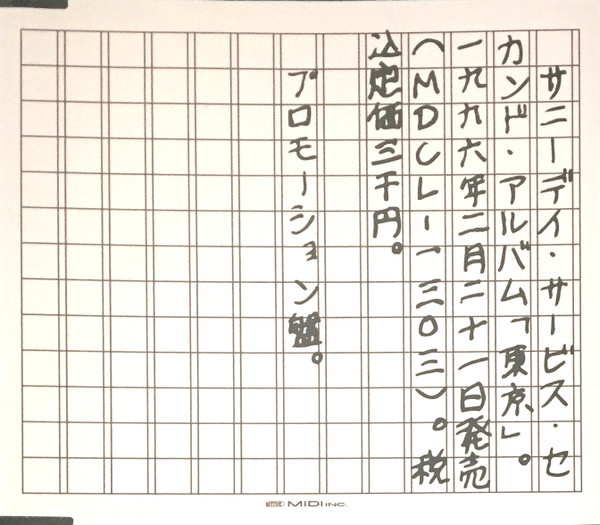 サニーデイ・サービス・セ
カンド・アルバム「東京」。
一九九六年二月二十一日発売
（MDCL－一三〇三）。税
込定価三千円。
プロモーション盤。
MIDI INC.